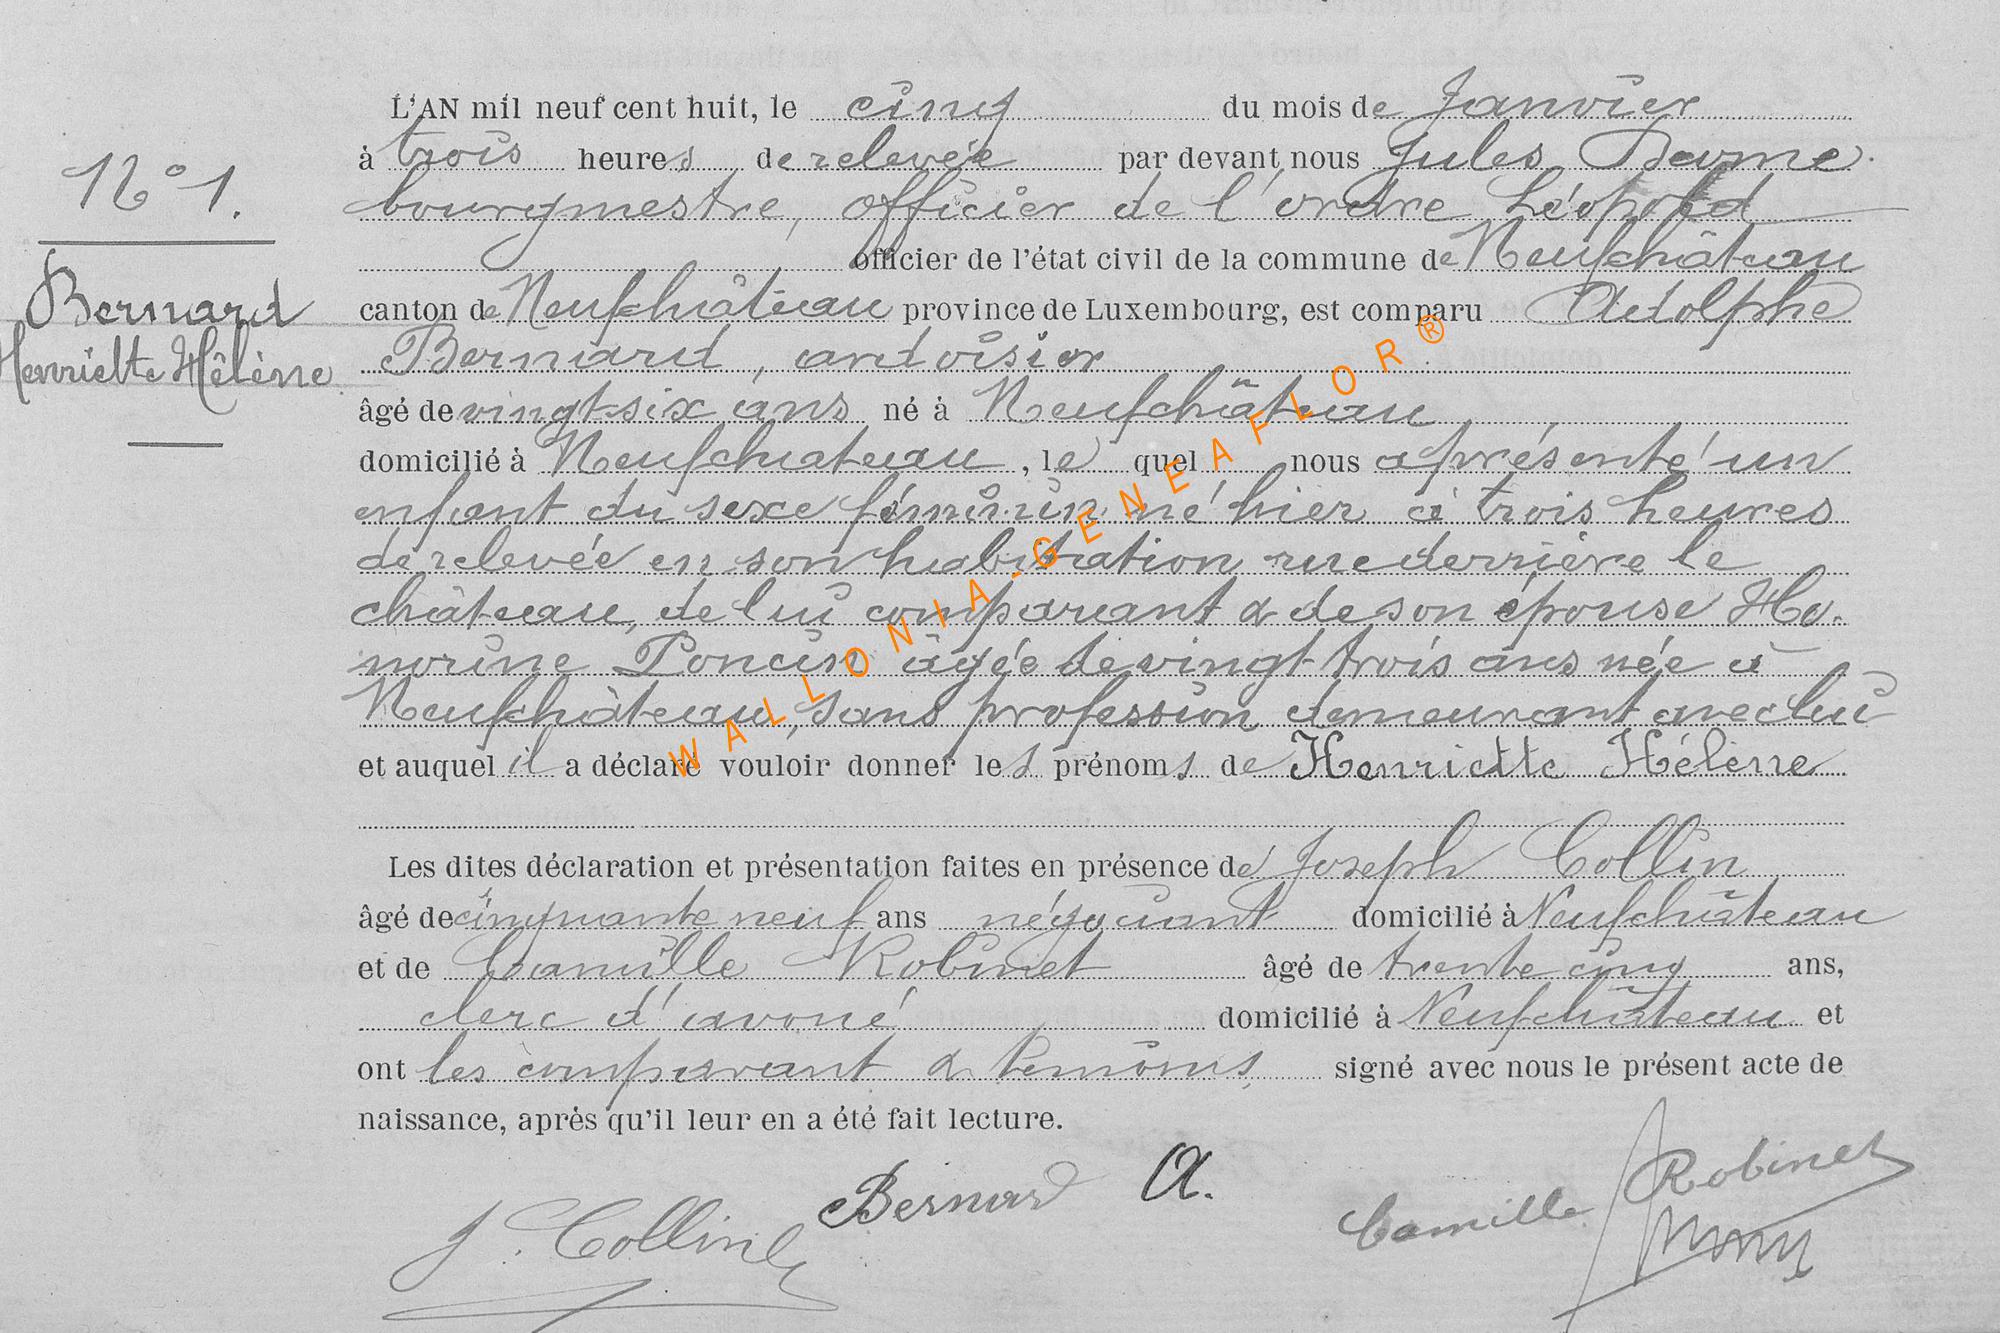 N° 1.
Bernard
Henriette Hélène
L'AN mil neuf cent huit, le cinq du mois de Janvier
à trois heures de relevée par devant nous Jules
bourgmestre, officier de l'ordre Léopold
officier de l'état civil de la commune de Neufchâteau
canton de Neufchâteau province de Luxembourg, est comparu Adolphe
Bernard, ardoisier
âgé de vingt-six ans né à Neufchâteau
domicilié à Neufchateau, le quel nous a présenté un
enfant du sexe féminin né hier à trois heures
de relevée en son habitation rue derrière le
château, de lui comparant & de son épouse Ho-
norine Poncin âgée de vingt-trois ans née à
Neufchâteau, sans profession demeurant avec lui
et auquel il a déclaré vouloir donner les prénoms de Henriette Hélène
Les dites déclaration et présentation faites en présence de Joseph Collin
âgé de cinquante neuf ans négociant domicilié à Neufchâteau
et de Camille Robinet âgé de trente cinq ans,
clerc d'avoué domicilié à Neufchâteau et
ont les comparant & témoins signé avec nous le présent acte de
naissance, après qu'il leur en a été fait lecture.
J. Collin
Bernard A.
Camille Robinet
WALLONIA-GENEAFLOR®